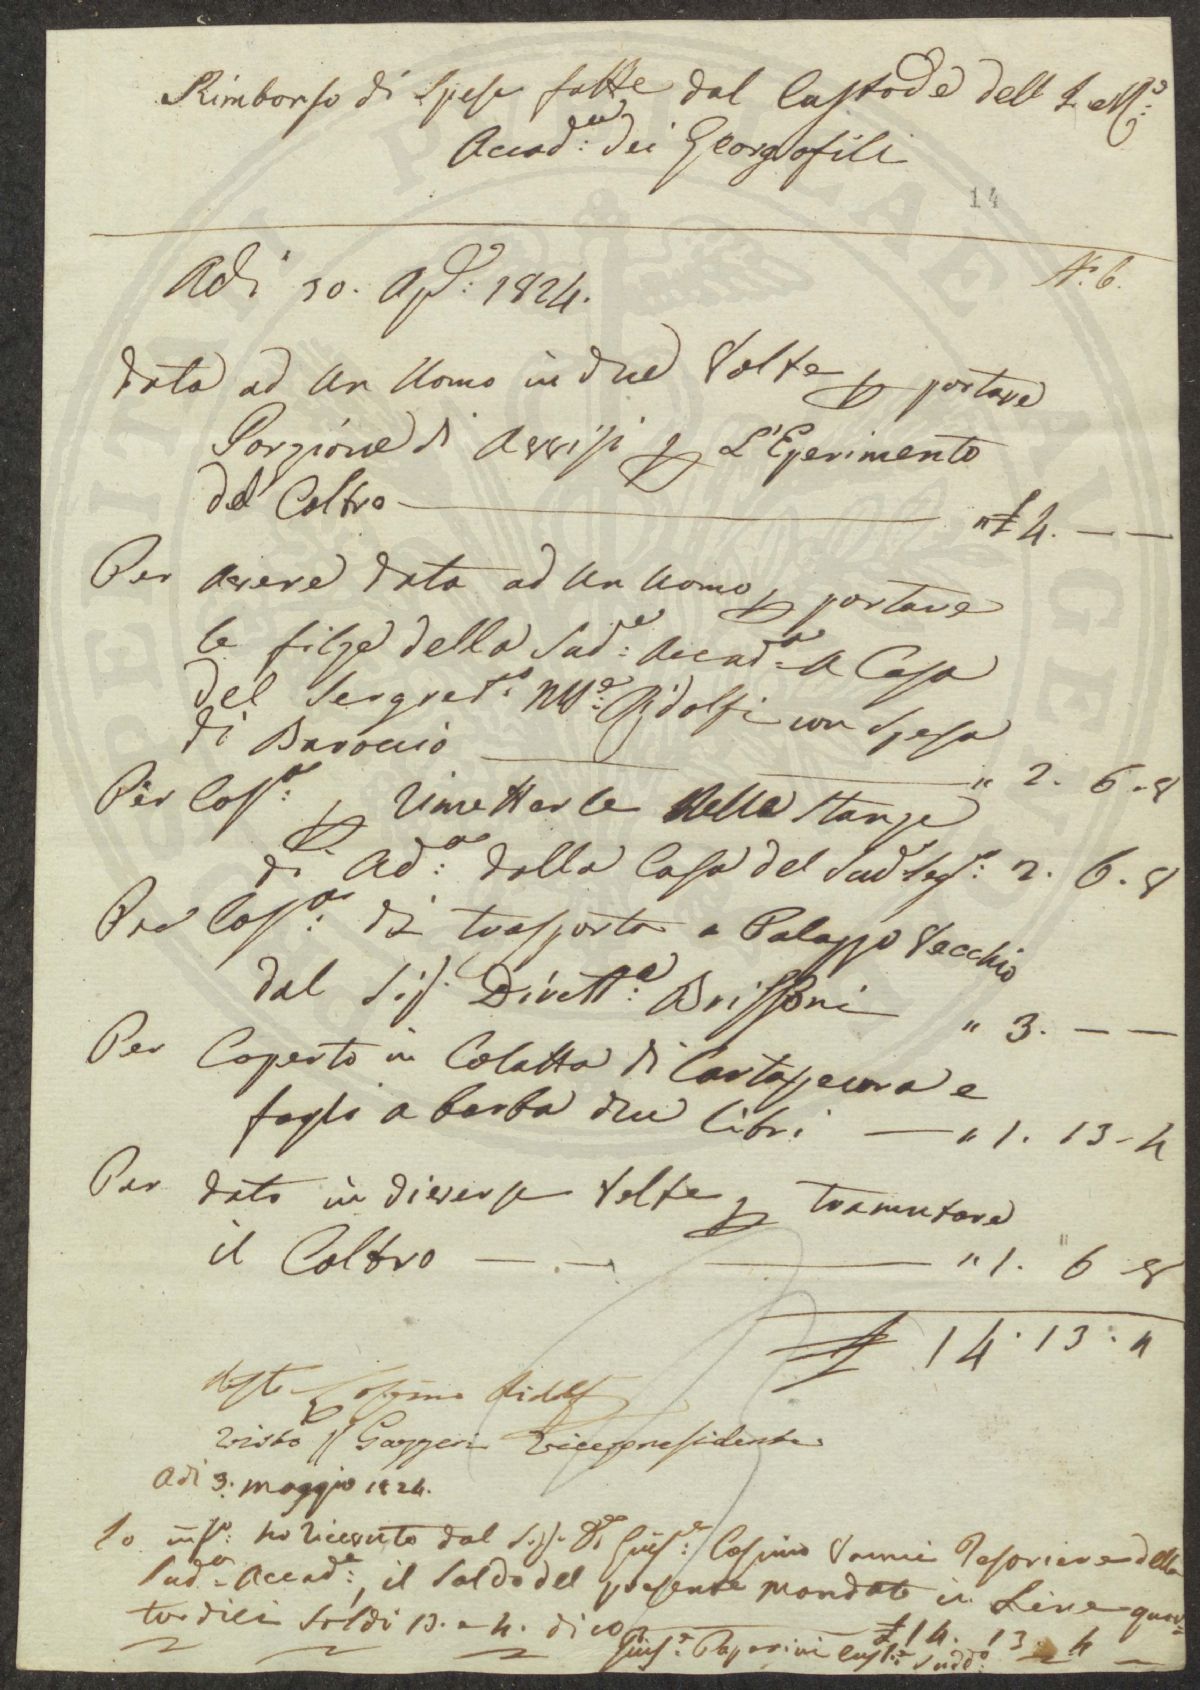 Rimborso di Spese fatte dal Custode dell' I. e R.
Accad.a dei Georgofili
14
N. 6.
Adì 30. Ap.e: 1824.
Dato ad un Uomo in due Volte p portare
Porzione di Avvisi p L'Eperimento
del Coltro — " £ 4. — —
Per Avere dato ad un Uomo p portare
le filze della Sud.a: Accad.a A Casa
del Sergret.o M.e: Ridolfi con Spesa
di Baroccio — " 2. 6. 8
Per Cos.a: p rimetterle Nelle Stanze
di Ad.a: dalla Casa del Sud.o Seg.o: 2. 6. 8
Per Cos.a: di trasporto a Palazzo Vecchio
dal Sig. Dirett.e:
" 3. — —
Per Coperto in Colatta di Cartapecora e
fogli a barba due Libri — " 1. 13 - 4
Per dato in diverse Volte p tramutare
il Coltro — — " 1. 6 8
£ 14. 13. 4
Visto Cosimo Ridolfi
Visto Gazzeri Vicepresidente
Adì 3. Maggio 1824.
Io inf.o: ho ricevuto dal Sig. Giusp.e: Cosimo Vanni Tesoriere della
Sud.a Accad.a:, il Saldo del presente Mandato in Lire quat=
tordici Soldi 13. e 4. dico £ 14. 13. 4
Gius.e Paperini Cust.e: Sudd.o: